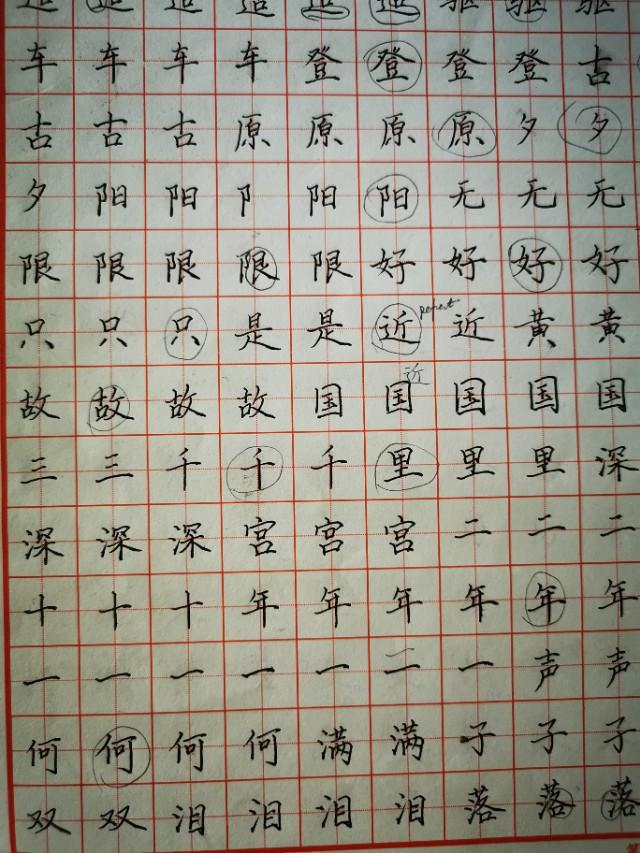 造 造 造 造 造 造 驱 驱 驱
车 车 车 车 登 登 登 登 古
古 古 古 原 原 原 原 夕 夕
夕 阳 阳 阝 阳 阳 无 无 无
限 限 限 限 限 好 好 好 好
只 只 只 是 是 近 近 黄 黄
近
故 故 故 故 国 国 国 国 国
三 三 千 千 千 里 里 里 深
深 深 深 宫 宫 宫 二 二 二
十 十 十 年 年 年 年 年 年
一 一 一 一 一 二 一 声 声
何 何 何 何 满 满 子 子 子
双 双 泪 泪 泪 泪 落 落 落